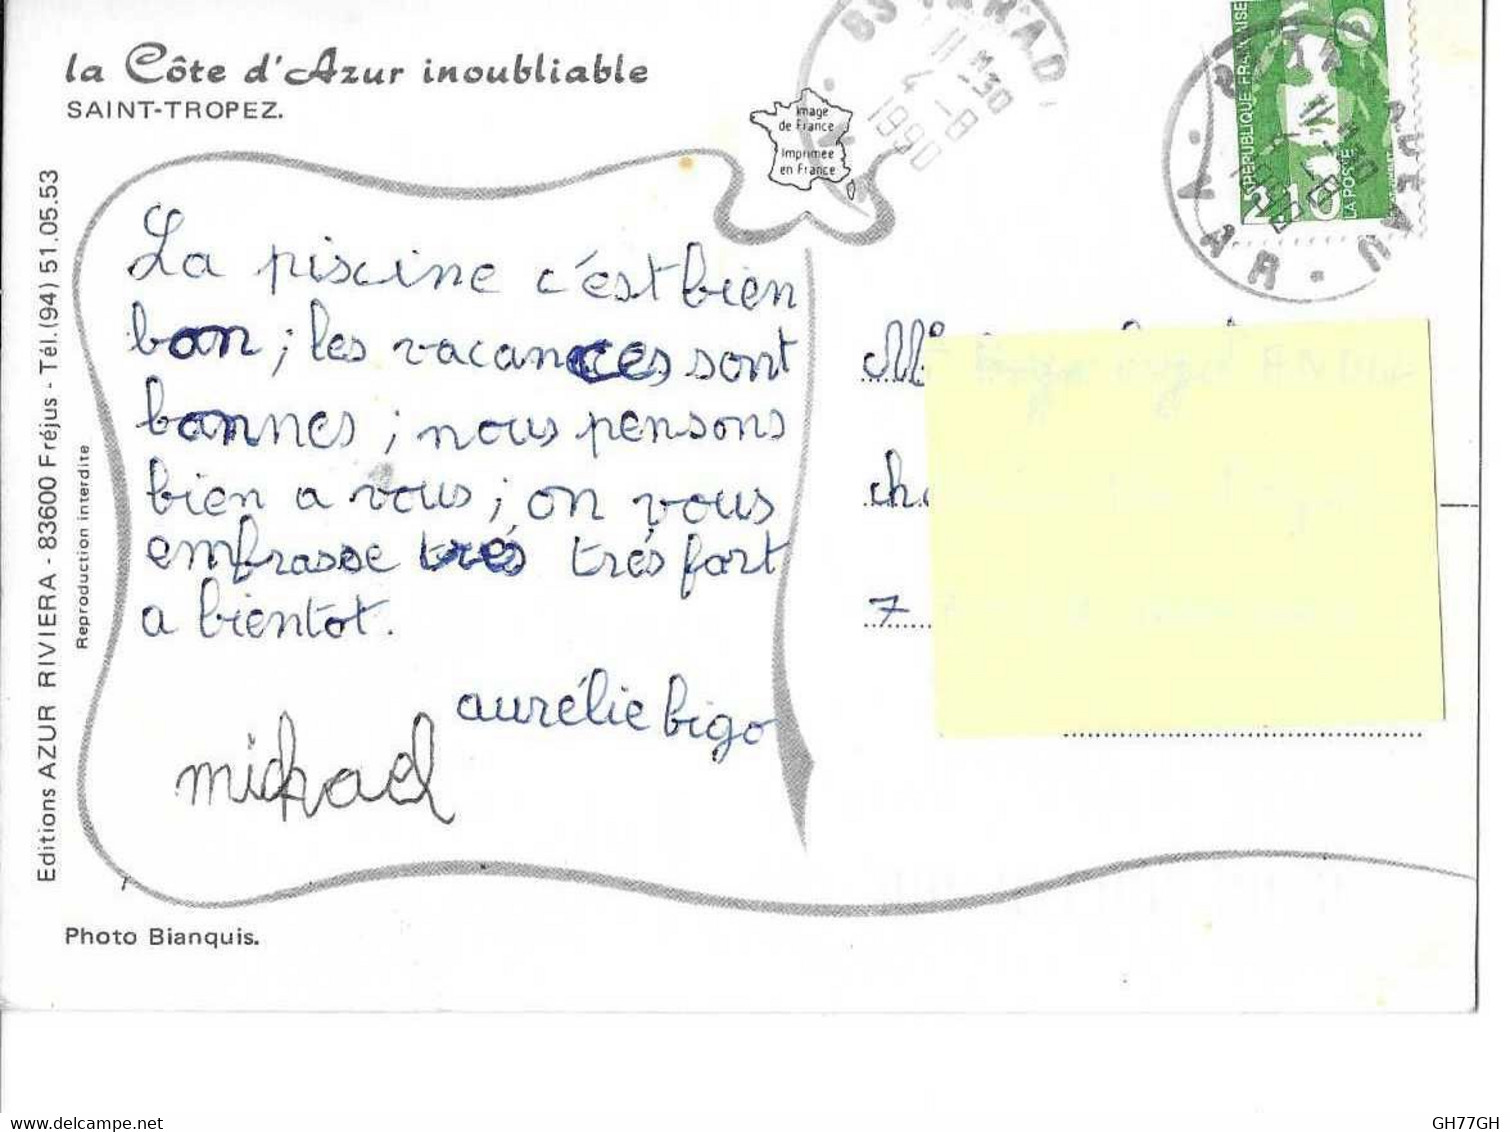 la Côte d'Azur inoubliable
SAINT-TROPEZ.
Editions AZUR RIVIERA - 83600 Fréjus - Tél.(94) 51.05.53
Reproduction interdite
Image
de France
Imprimée
en France
11 H30
4 -8
1990
REPUBLIQUE FRANÇAISE
2,10
LA POSTE
11 H30
4 -8
VAR
La piscine c'est bien
bon ; les vacances sont
bonnes ; nous pensons
bien a vous ; on vous
embrasse très trés fort
a bientot.
aurélie bigo
michael
7
Photo Bianquis.
GH77GH